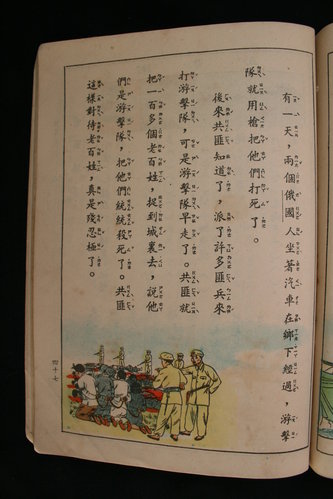 有一天，兩個俄國人坐著汽車在鄉下經過，游擊
隊就用槍把他們打死了。
後來共匪知道了，派了許多匪兵來
打游擊隊，可是游擊隊早走了。共匪就
把一百多個老百姓，捉到城裏去，說他
們是游擊隊，把他們統統殺死了。共匪
這樣對待老百姓，真是殘忍極了。
四十七